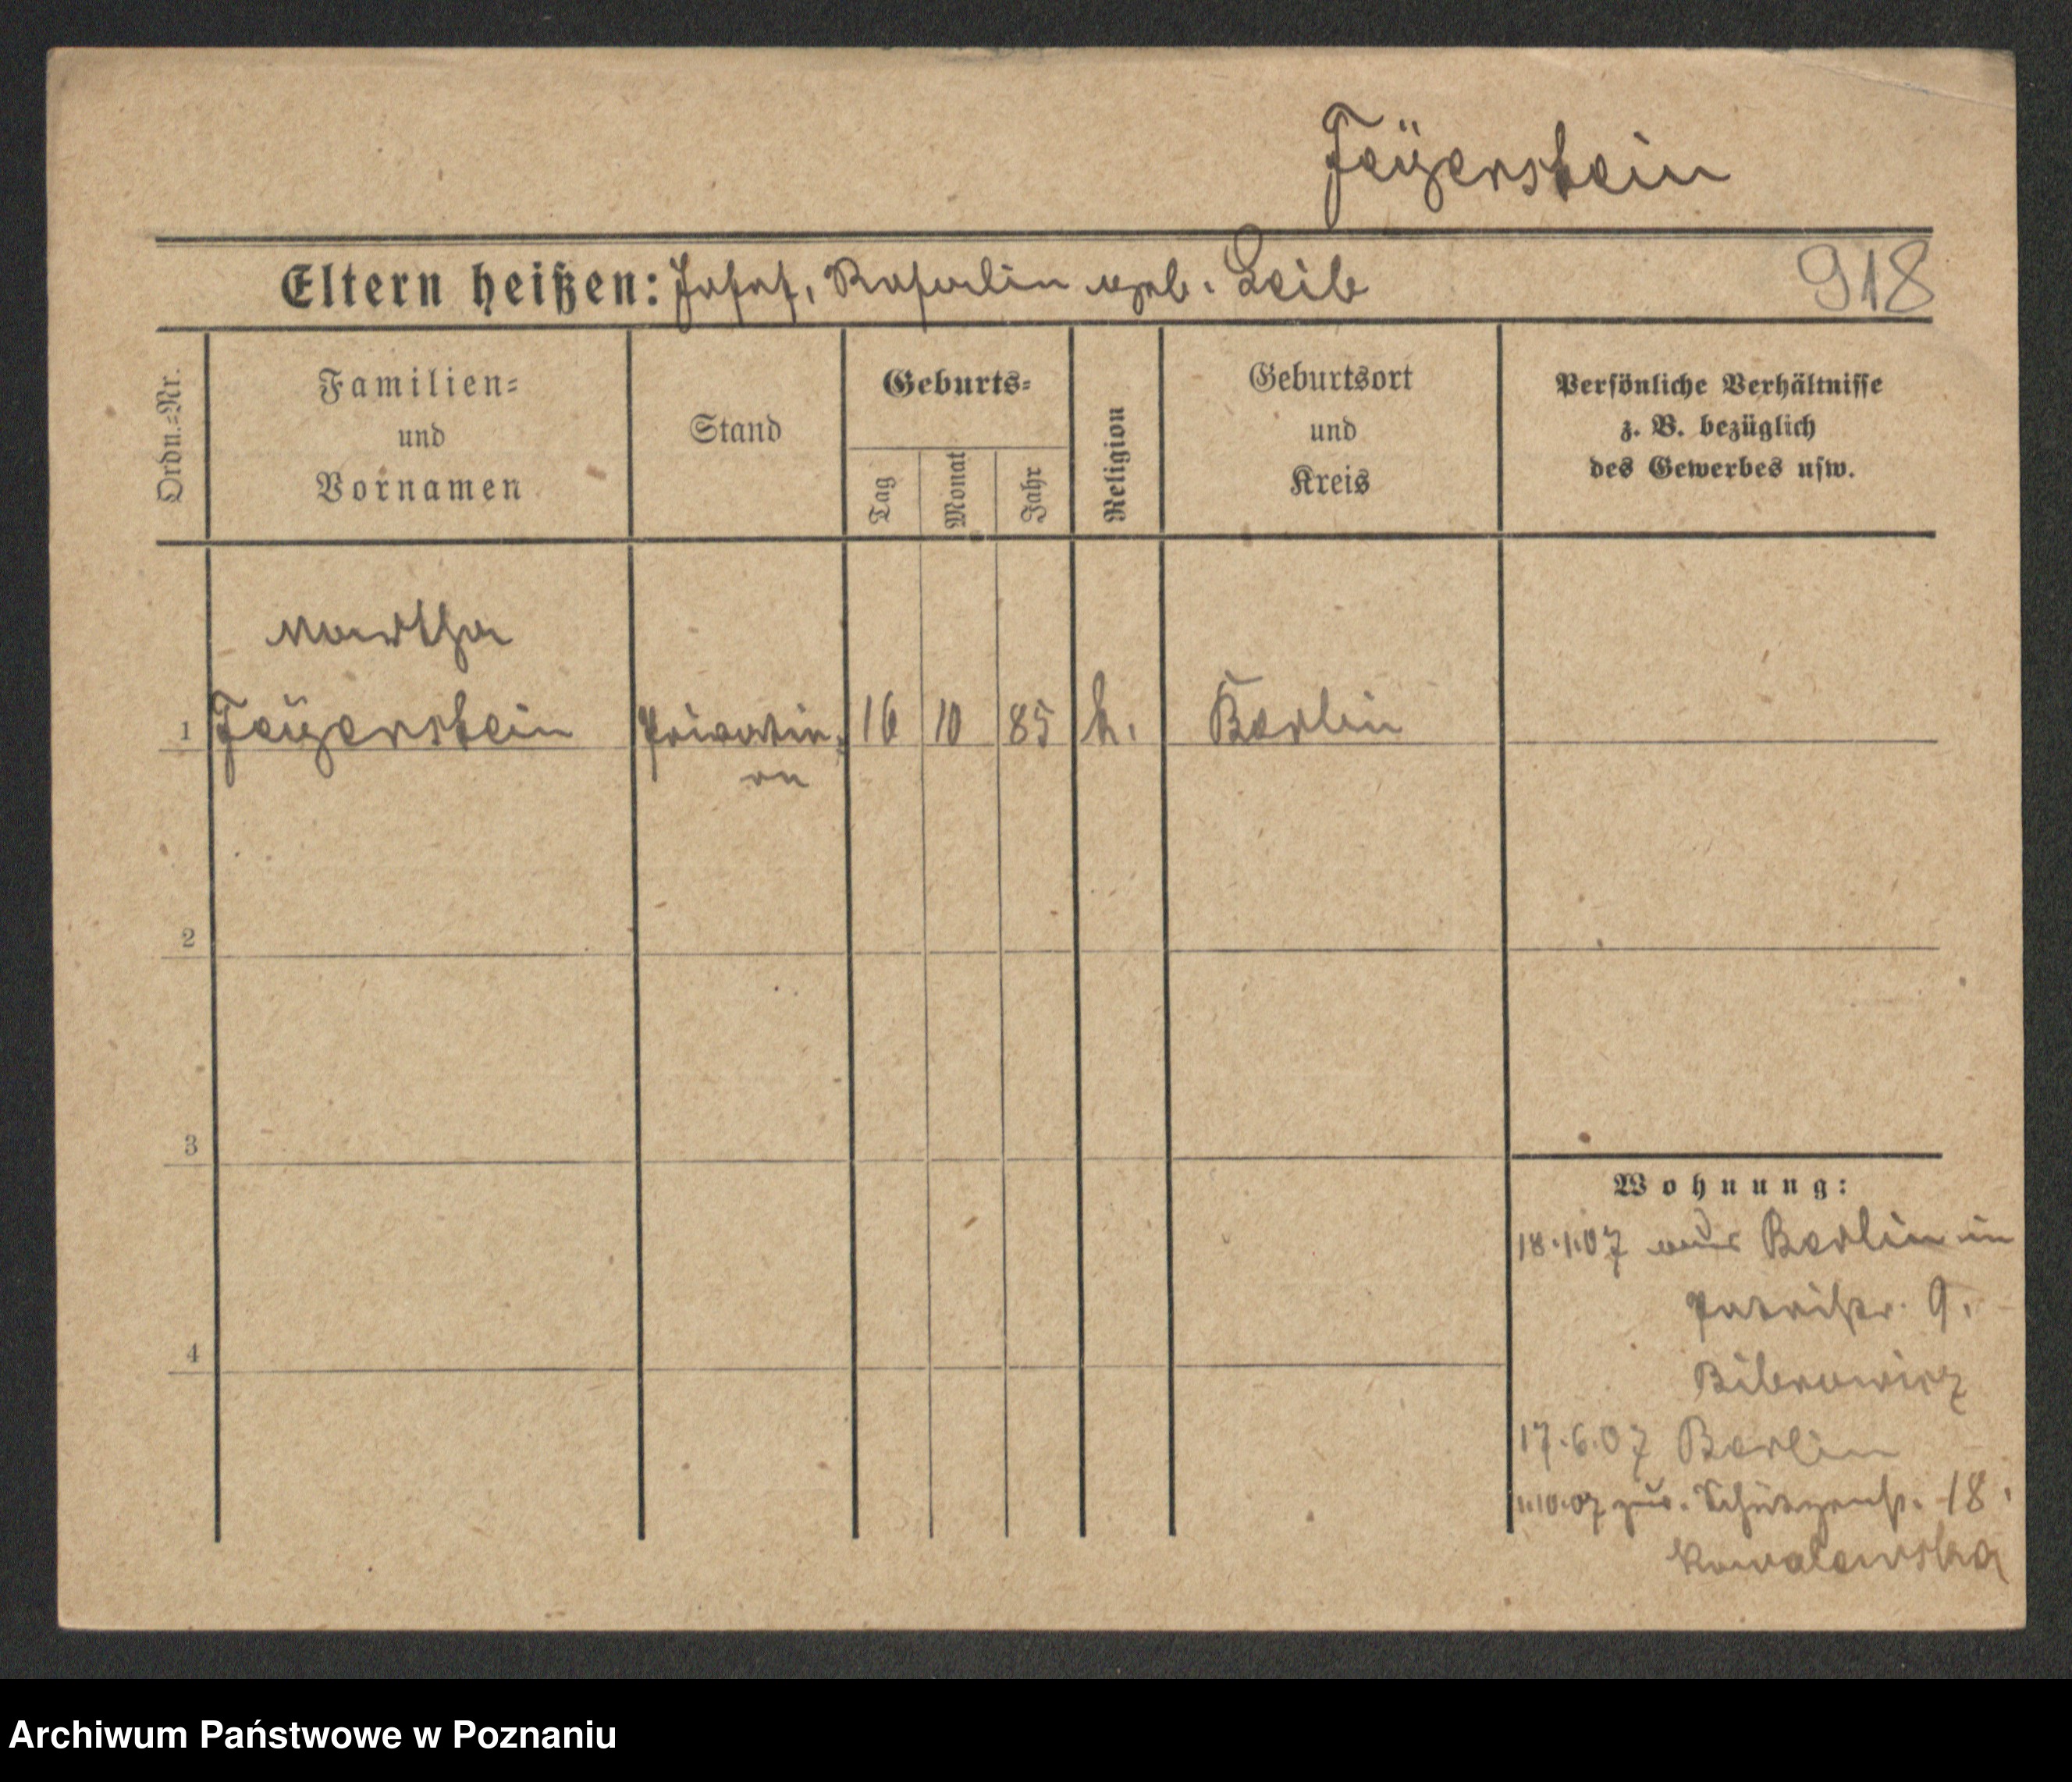 Feyerstein
Eltern heißen: Josef, Rosalin geb. Leib
918
Ordn.=Nr.
Familien=
und
Vornamen
Stand
Geburts=
Tag
Monat
Jahr
Religion
Geburtsort
und
Kreis
Persönliche Verhältnisse
z. B. bezüglich
des Gewerbes usw.
Martha
1 Feyerstein 16 10 85 k. Berlin
2
3
4
Wohnung:
18.1.07 aus Berlin in
9.
17.6.07 Berlin
1.10.07 zur. Schützenstr. 18.
Kowalewska
Archiwum Państwowe w Poznaniu